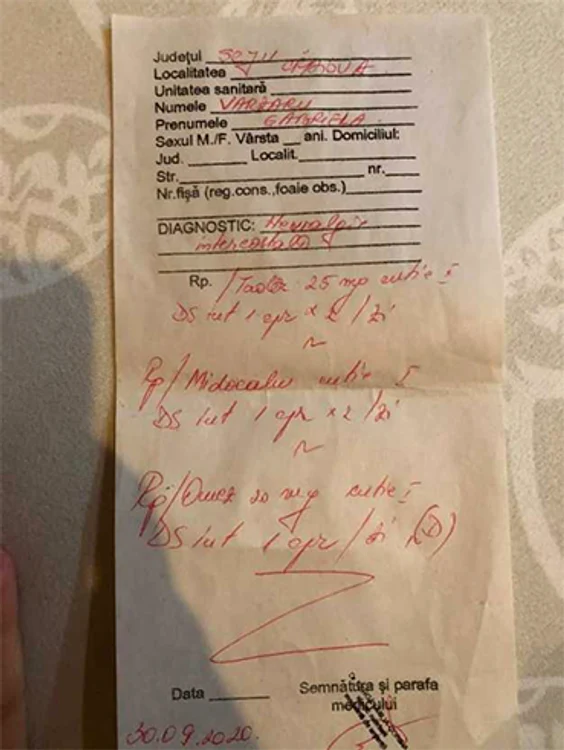 Județul
Localitatea
Unitatea sanitară
Numele VARZARU
Prenumele GABRIELA
Sexul M./F. Vârsta ani. Domiciliul:
Jud. Localit.
Str. nr.
Nr.fișă (reg.cons.,foaie obs.)
DIAGNOSTIC: Nevralgie
intercostala
Rp. / 25 mg cutie I
DS int 1 cpr x 2 / zi
Rp/ Midocalm cutie I
DS int 1 cpr x 2 / zi
Rp/ Omez 20 mg cutie I
DS int 1 cpr / zi (D)
Data Semnătura și parafa
medicului
30.09.2020.